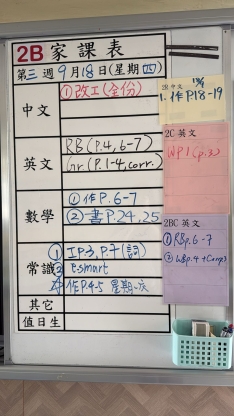 2B 家課表
第三週 9月18日(星期四)
中文
①改工(全份)
英文
RB(P.4,6-7)
Gr.(P.1-4,corr.)
數學
①作P.6-7
②書P.24,25
常識
①IP.3,P.7(詞)
Esmart
作P.4-5
其它
值日生
2B 中文
1.作P.18-19
2C 英文
WP1(p.3)
2BC 英文
①RBp.6-7
②WBp.4+Comp)